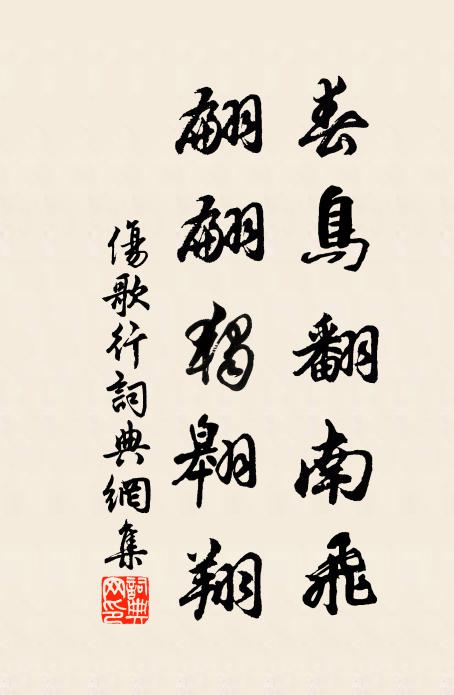 春鳥翻南飛
翩翩獨翱翔
傷歌行詞典網集
詞典網印